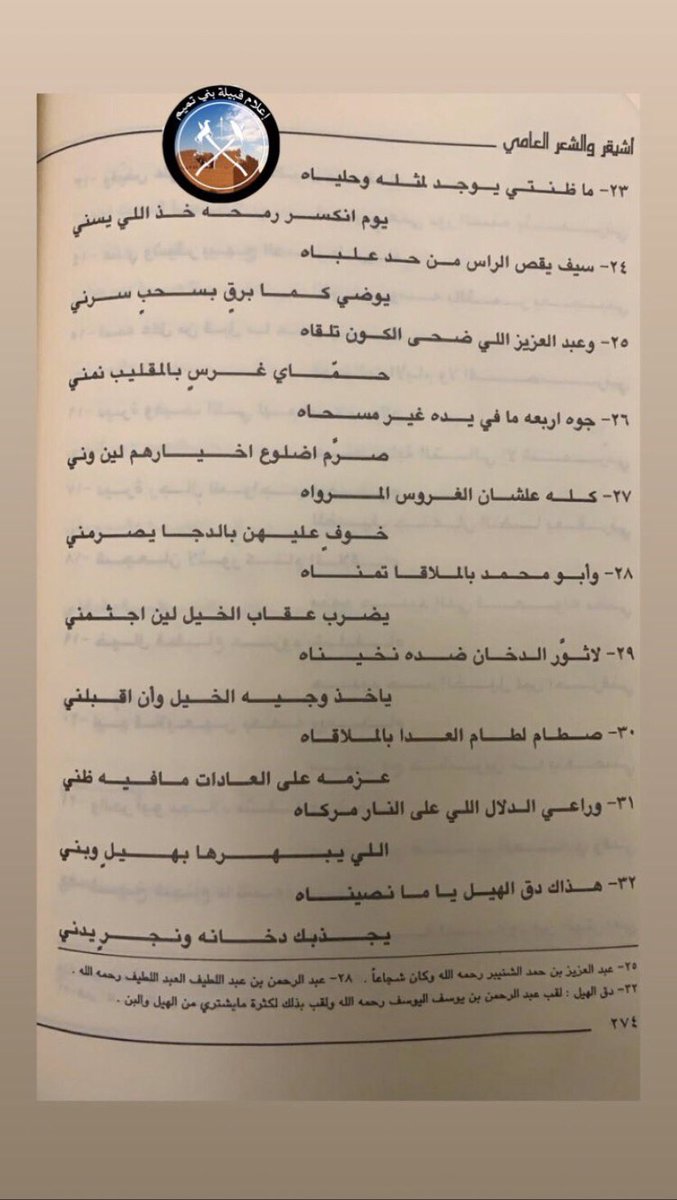 اعلام قبيلة بني تميم
أشيقر والشعر العامي
٢٣- ما ظنتي يوجد لمثله وحلياه
يوم انكسر رمحه خذ اللي يسني
٢٤- سيف يقص الراس من حد علباه
يوضي كما برقٍ بسحبٍ سرني
٢٥- وعبد العزيز اللي ضحى الكون تلقاه
حمّاي غرسٍ بالمقليب نمني
٢٦- جوه اربعه ما في يده غير مسحاه
صرّم اضلوع اخيارهم لين وني
٢٧- كله علشان الغروس المرواه
خوفٍ عليهن بالدجا يصرمني
٢٨- وأبو محمد بالملاقا تمناه
يضرب عقاب الخيل لين اجثمني
٢٩- لاثوّر الدخان ضده نخيناه
ياخذ وجيه الخيل وأن اقبلني
٣٠- صطام لطام العدا بالملاقاه
عزمه على العادات مافيه ظني
٣١- وراعي الدلال اللي على النار مركاه
اللي يبهرها بهيلٍ وبني
٣٢- هذاك دق الهيل يا ما نصيناه
يجذبك دخانه ونجرٍ يدني
٢٥- عبد العزيز بن حمد الشنيبر رحمه الله وكان شجاعاً . ٢٨- عبد الرحمن بن عبد اللطيف العبد اللطيف رحمه الله .
٣٢- دق الهيل : لقب عبد الرحمن بن يوسف اليوسف رحمه الله ولقب بذلك لكثرة مايشتري من الهيل والبن .
٢٧٤